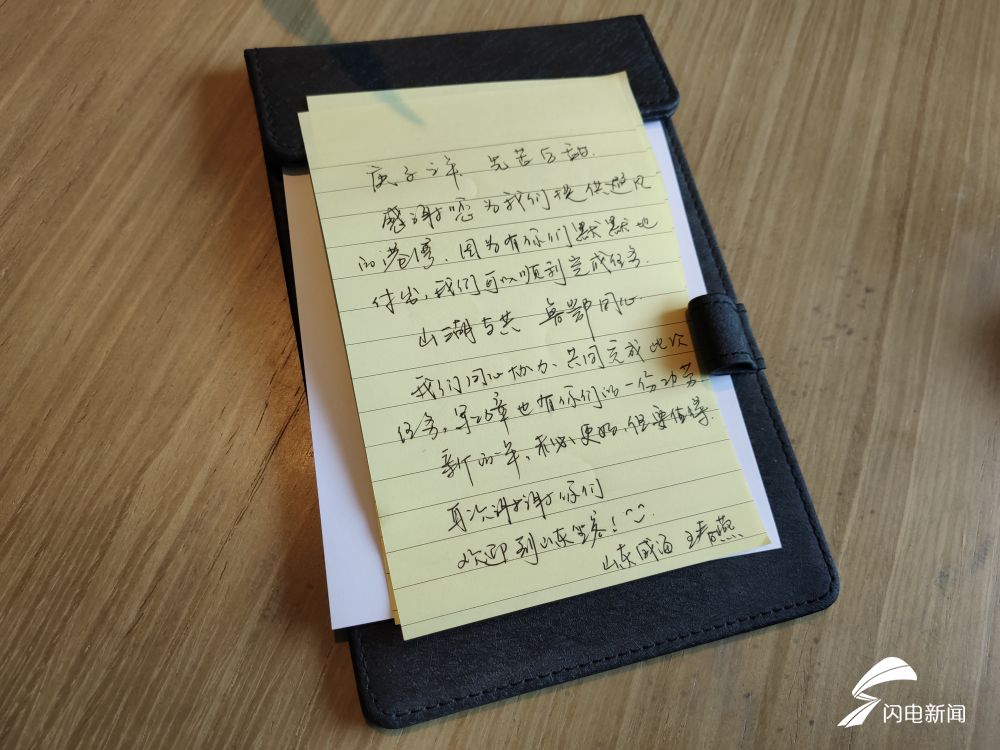 庚子之年 先苦后甜.
感谢您为我们提供避风
的港湾，因为有你们默默地
付出，我们可以顺利完成任务.
山湖与共 鲁鄂同心.
我们同心协力、共同完成此次
任务，军功章也有你们的一份功劳
新的一年，未必更好，但要值得.
再次谢谢你们
欢迎到山东坐客！
山东威海 王春燕
闪电新闻